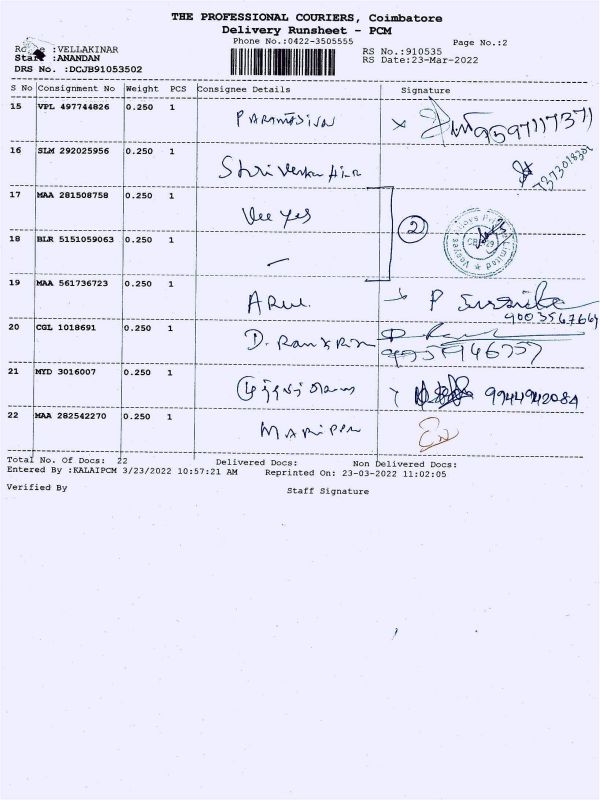 THE PROFESSIONAL COURIERS, Coimbatore
Delivery Runsheet - PCM
Phone No.:0422-3505555
Page No.:2
:VELLAKINAR
RS No.:910535
:ANANDAN
RS Date:23-Mar-2022
DRS No. :DCJB91053502
S No Consignment No Weight PCS Consignee Details Signature
15 VPL 497744826 0.250 1
16 SLM 292025956 0.250 1 Shri
17 MAA 281508758 0.250 1 Vee Yes
2
18 BLR 5151059063 0.250 1 —
19 MAA 561736723 0.250 1 ARUL. P
20 CGL 1018691 0.250 1 D.
21 MYD 3016007 0.250 1 9944942084
22 MAA 282542270 0.250 1
Total No. Of Docs: 22 Delivered Docs: Non Delivered Docs:
Entered By :KALAIPCM 3/23/2022 10:57:21 AM Reprinted On: 23-03-2022 11:02:05
Verified By Staff Signature